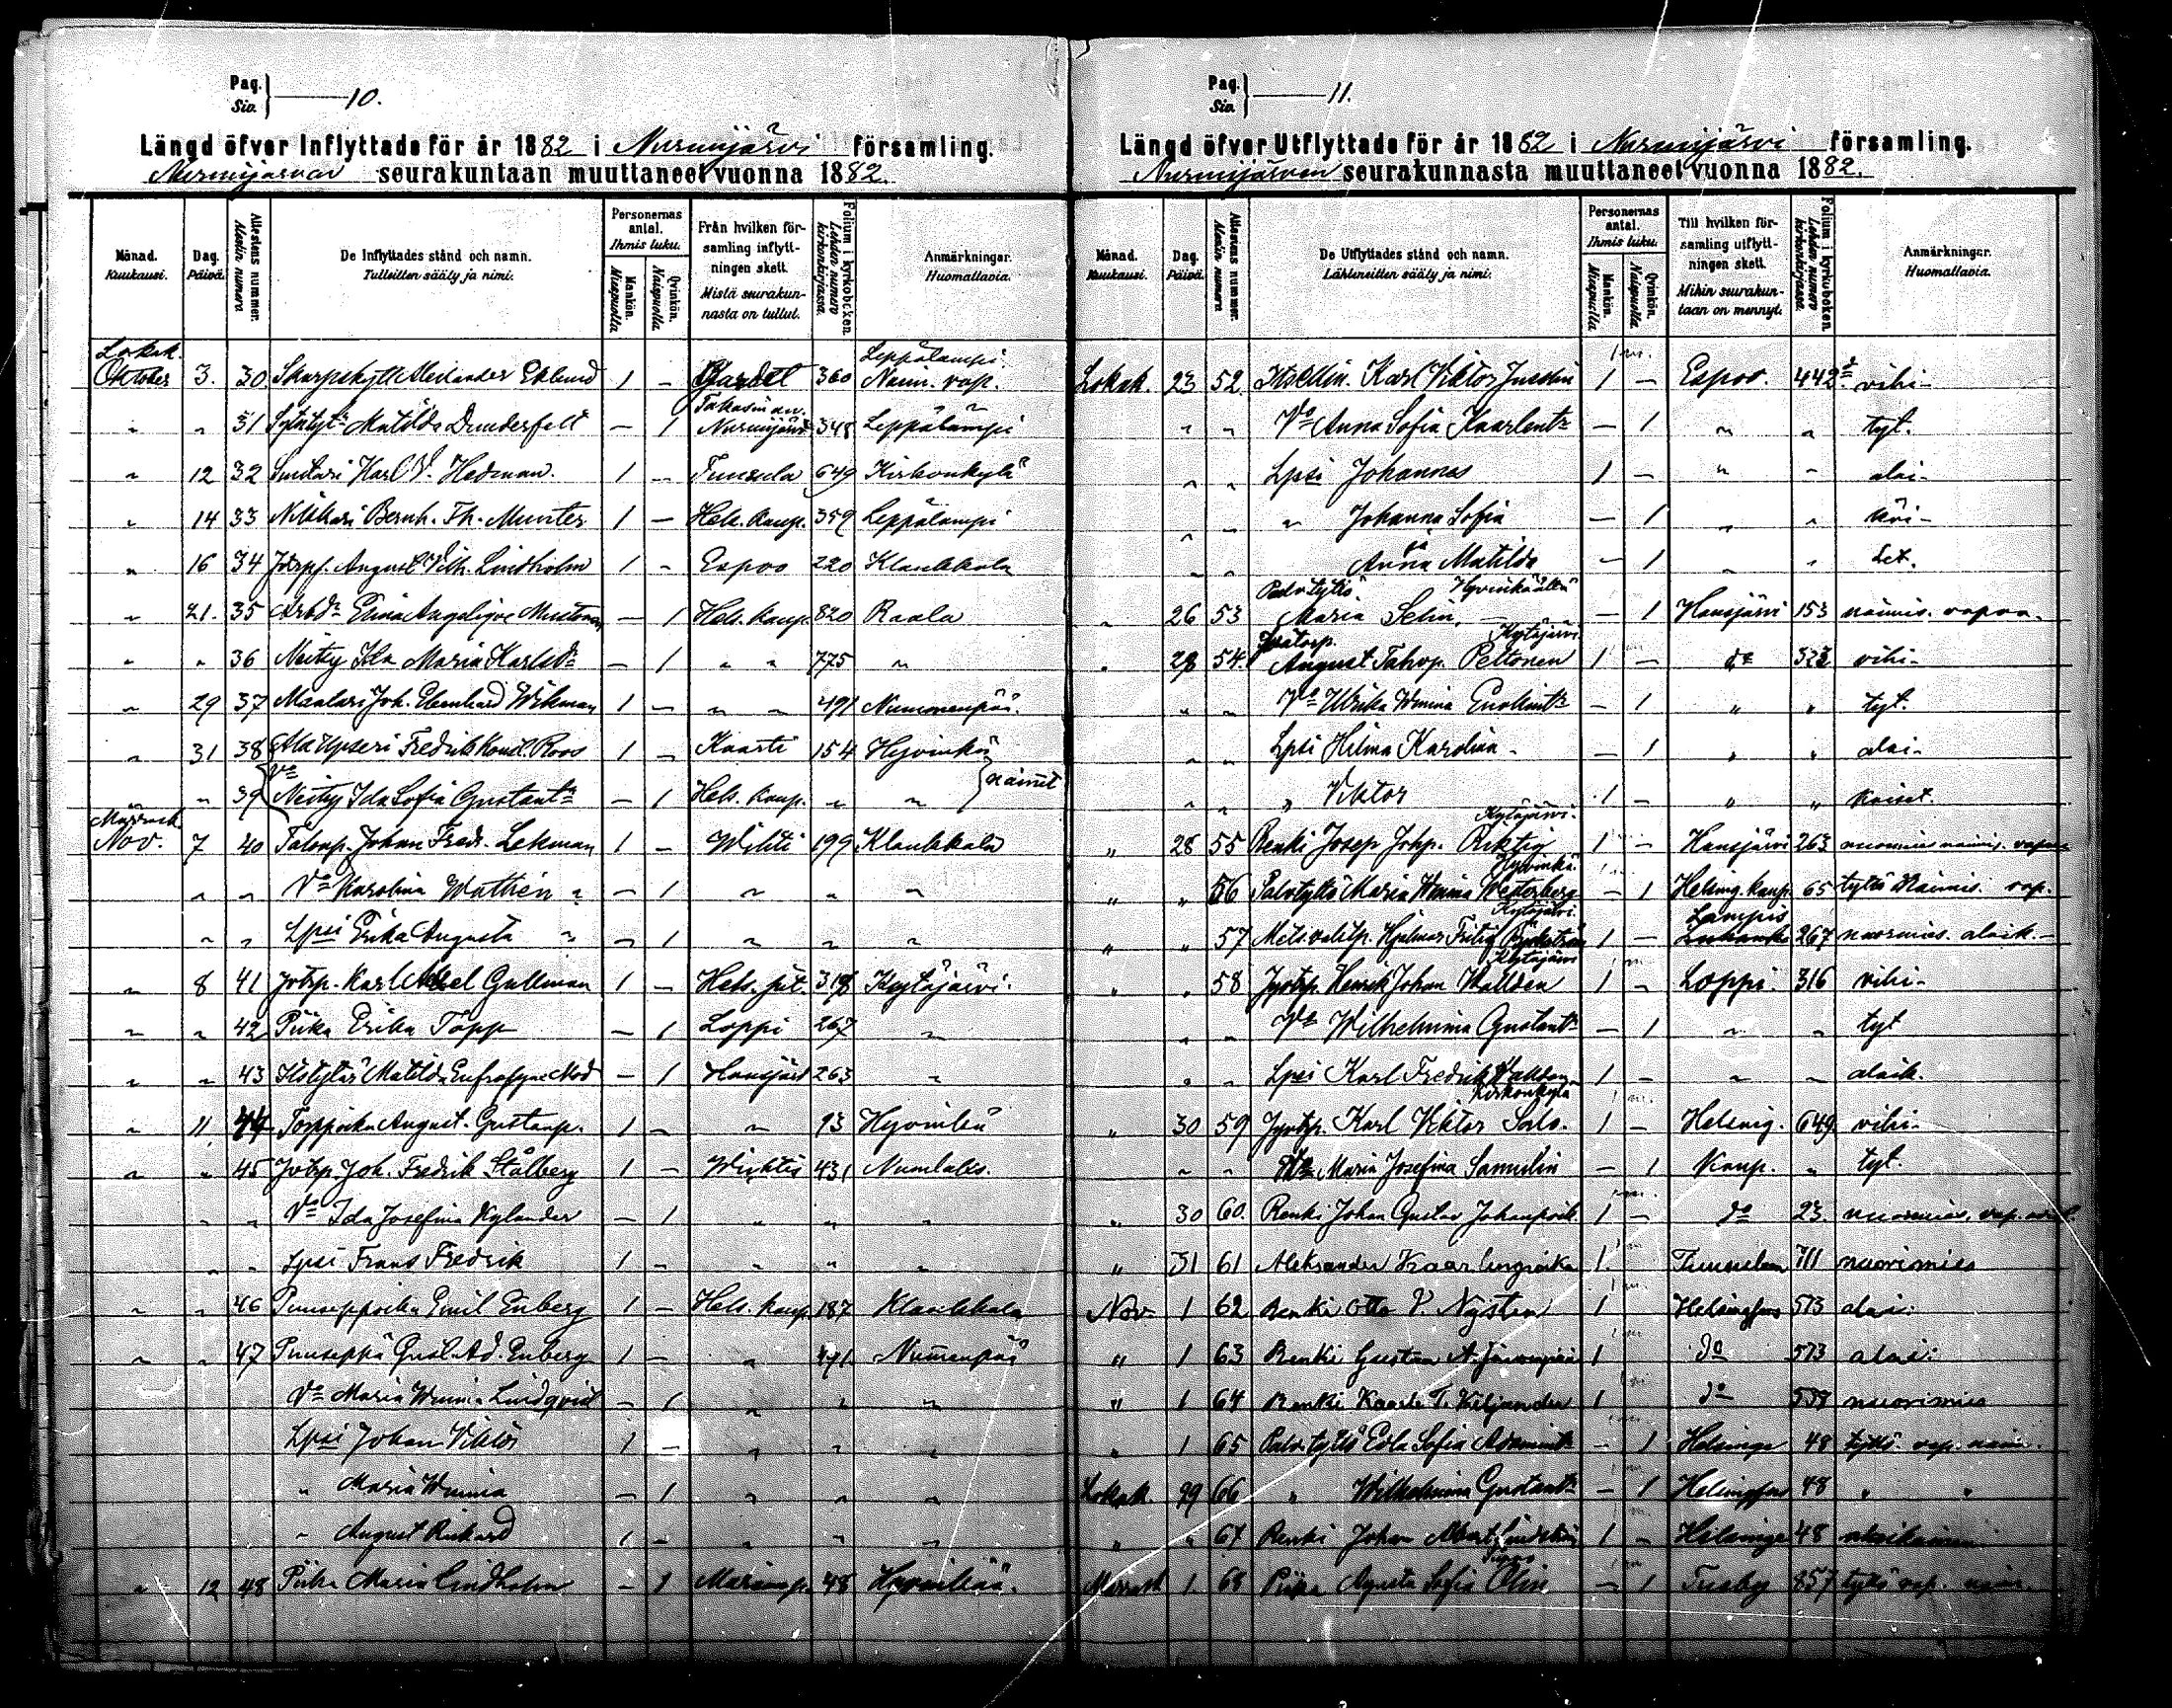 Pag. Siv. 10.
Längd öfver Inflyttade för år 1882 i Nurmijärvi församling.
Nurmijärven seurakuntaan muuttaneet vuonna 1882.
Månad. Kuukausi.
Dag. Päivä.
Attestens nummer. Alestin numero
De Inflyttades stånd och namn. Tulleitten sääly ja nimi.
Personernas antal. Ihmis luku.
Mankön. Miespuolia
Qvinkön. Naispuolia
Från hvilken församling inflyttningen skett. Mistä seurakunnasta on tullut.
Folium i kyrkoboken. Lehden numero kirkonkirjassa.
Anmärkningar. Huomattavia.
Lokak. Leppälampi.
Oktober 3. 30 Skarpskytt Alexander Eklund 1 - Gardet 360 Naim. vap.
" " 31 Matilda Dunderfelt - 1 Nurmijärvi 348 Leppälampi
" 12 32 Suutari Karl V. Hedman. 1 - Tuusula 649 Kirkonkylä
" 14 33 Nikkari Bernh. Th. Munter 1 - Hels. kaup. 359 Leppälampi
" 16 34 August Vilh. Lindholm 1 - Espoo 220 Klaukkala
" 21. 35 Angelique - 1 Hels. kaup. 820 Raala
" " 36 Neitsy Ida Maria Karlsdr - 1 " " 775 "
" 29 37 Maalari Joh. Edvard Wikman 1 - " " 491 Nummenpää.
" 31 38 Ala Upseri Fredrik Konst. Roos 1 - Kaarti 154 Hyvinkää
" 39 Vo Neitsy Ida Sofia Gustantr - 1 Hels. kaup. " " naimit
Marrask.
Nov. 7 40 Talonp. Johan Fredr. Lekman 1 - Wihti 199 Klaukkala
" " " Vo Karolina Wathén - 1 " " "
" " " Lpsi Erika Augusta - 1 " " "
" 8 41 Jvtsp. Karl Axel Gullman 1 - Hels. pit. 318 Kytäjärvi.
" " 42 Piika Erika Topp - 1 Loppi 267 "
" " 43 Itstytär Matilda Eufrosyne Mod - 1 Hausjärvi 263 "
" 11. 44 Torppoika August Gustanp. 1 - " 93 Hyvinkää
" " 45 Jvtsp. Joh. Fredrik Stålberg 1 - Wichtis 431 Numlaks.
" " Vo Ida Josefina Nylander - 1 " " "
" " Lpsi Frans Fredrik 1 - " " "
" " 46 Puuseppoika Emil Enberg 1 - Hels. kaup. 187 Klaukkala
" " 47 Puuseppä Gust. Ad. Enberg 1 - " 491 Nummenpää
Vo Maria Wmina Lindqvist - 1 " " "
Lpsi Johan Viktor 1 - " " "
" Maria Wmina - 1 " " "
" August Rikard 1 - " " "
" 12 48 Piika Maria Lindholm - 1 48 Hyvinkää.
Pag. Siv. 11.
Längd öfver Utflyttade för år 1882 i Nurmijärvi församling.
Nurmijärven seurakunnasta muuttaneet vuonna 1882.
Månad. Kuukausi.
Dag. Päivä.
Attestens nummer. Alestin numero
De Utflyttades stånd och namn. Lähteneitten sääly ja nimi.
Personernas antal. Ihmis luku.
Mankön. Miespuolia
Qvinkön. Naispuolia
Till hvilken församling utflyttningen skett. Mihin seurakuntaan on mennyt.
Folium i kyrkoboken. Lehden numero kirkonkirjassa.
Anmärkningar. Huomattavia.
Lokak. 23 52. Itsellin. Karl Viktor Juselin 1 - Espoo. 442. vihi-
" " Vo Anna Sofia Kaarlentr - 1 " " tyt.
" " Lpsi Johannes 1 - " " alai-
" " " Johanna Sofia - 1 " " käi-
" " ja Anna Matilda - 1 " " set.
Palvtyttö Hyvinkäältä
" 26 53 Maria Selin. - 1 Hausjärvi 153 naimis. vapaa.
Kytäjärvi
" 28 54. August Peltonen 1 - do 322 vihi-
" " Vo Ulrika Wmina - 1 " " tyt.
" " Lpsi Hilma Karolina - 1 " " alai-
" " " Viktor 1 - " " kaiset.
Kytäjärvi.
" 28 55 Renki Josep Johp. Riktig 1 - Hausjärvi 263 nuorimies naimis. vapaa
Hyvinkä.
" " 56 Palvtyttö Maria Wmina Wederberg - 1 Helsing. kaup. 65 tyttö naimis. vap.
Kytäjärvi Lampis
" " 57 Hjalmar 1 - 267 nuormies. alaik.-
Kytäjärvi
" " 58 Henrik Johan Wallden 1 - Loppi. 316 vihi-
" " Vo Wilhelmina Gustantr - 1 " " tyt
" " Lpsi Karl Fredrik Wallden 1 - " " alaik.
Kirkonkylä
" 30 59 Karl Viktor Salo. 1 - Helsing. 649 vihi-
" " Vo Maria Josefina Samelin - 1 Kaup. " tyt.
" 30 60. Renki Johan Gustav 1 - do 23. nuormies. vap.
" 31 61 Aleksander Kaarlenpoika 1. Tuusulan 711 nuorimies
Nov. 1 62 Renki Otto V. Nysten 1 Helsingfors 573 alai:
" 1 63 Renki Gustav A. 1 do 573 alai:
" 1 64 Renki Kaarle T. Kiljander 1 do 559 nuorimies
" 1 65 Palvtyttö Edla Sofia - 1 Helsinge 48 tyttö. vap. naim.
Lokak. 29 66 " Wilhelmina Gustantr - 1 Helsingfors 48 " "
" " 67 Renki Johan Albert Lindström 1 - Helsinge 48 alaikainen
Marrask 1. 68 Piika Agusta Sofia - 1 Tusby 857 tyttö vap. naim.